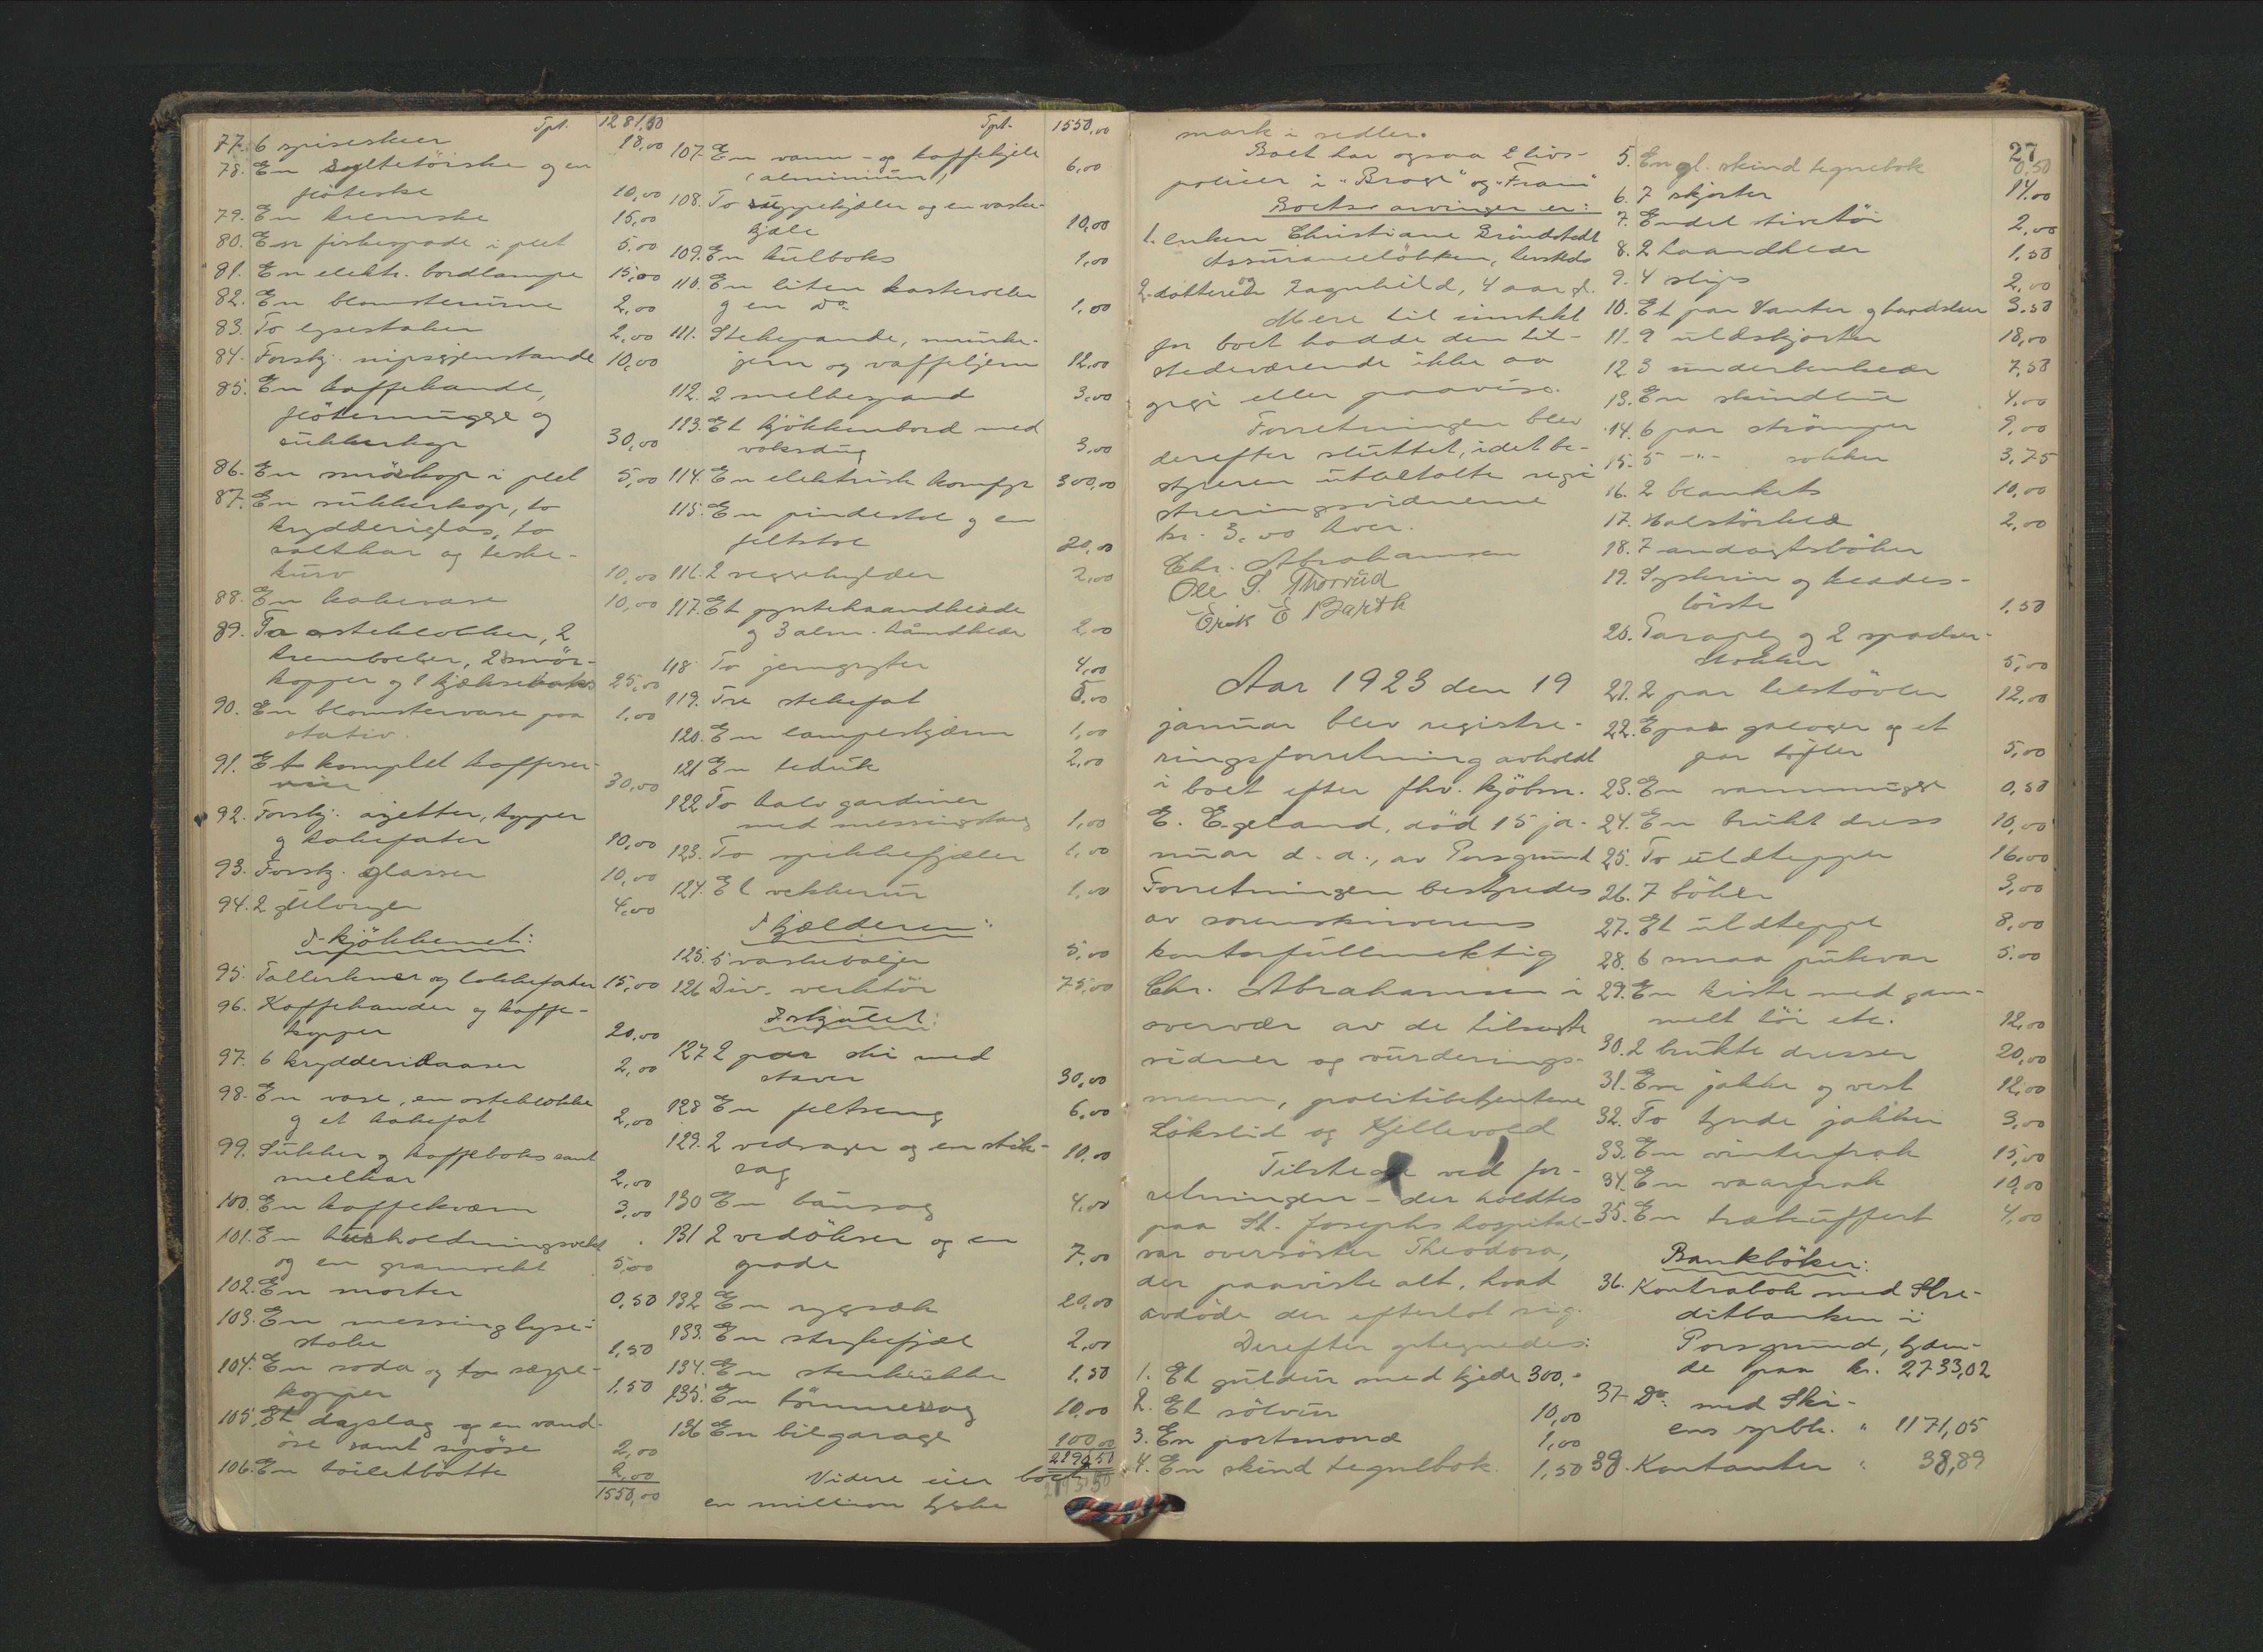 Tpt. 1281,50
77. 6 spiseskeer 18,00
78. En syltetöiske og en
flöteske 10,00
79. En kremske 15,00
80. En fiskespade i plet 5,00
81. En elektr. bordlampe 15,00
82. En blomsterurne 2,00
83. To lysestaker 2,00
84. Forskj. nipsgjenstande 10,00
85. En kaffekande,
flötemugge og
sukkerkop 30,00
86. En smörkop i plet 5,00
87. En sukkerkop, to
krydderiglas, to
saltkar og teske-
kurv 10,00
88. En kakevase 10,00
89. To osteklokker, 2
kremboller, 2 smör-
kopper og 1 kjæksboks 25,00
90. En blomstervase paa 1,00
stativ.
91. Et komplet kaffeser-
vise 30,00
92. Forskj. asjetter, kopper
og kakefater 10,00
93. Forskj. glasser 10,00
94. 2 gulvryer 4,00
I kjökkenet:
95. Tallerkner og lokkefater 15,00
96. Kaffekander og kaffe-
kopper 20,00
97. 6 krydderidaaser 2,00
98. En vase, en osteklokke
og et kakefat 2,00
99. Sukker og kaffeboks samt
melkar 2,00
100. En kaffekværn 3,00
101. En husholdningsvekt
og en gramvekt 5,00
102. En morter 0,50
103. En messinglyse-
stake 1,50
104. En soda og to sæpe-
kopper 1,50
105. Et dørslag og en vand-
öse samt supöse 2,00
106. En toiletbötte 2,00
1550,00
Tpt. 1550,00
107. En vann- og kaffekjele
(aluminium) 6,00
108. To suppekjeler og en vaske-
kjele 10,00
109. En kulboks 1,00
110. En liten kasteroller
og en do 1,00
111. Stekepande, munke-
jern og vaffeljern 12,00
112. 2 melkespand 3,00
113. Et kjökkenbord med
voksdug 3,00
114. En elektrisk komfyr 300,00
115. En pindestol og en
feltstol 20,00
116. 2 veggehylder 2,00
117. Et pyntehaandklæde
og 3 alm. håndklær 2,00
118 To jerngryter 4,00
119. Tre stekefat 5,00
120. En lampeskjærm 1,00
121 En teduk 2,00
122 To halv gardiner
med messingstang 1,00
123. To spikkefjæler 1,00
124. Et vekkerur 1,00
I kjælderen:
125. 5 vaskebaljer 5,00
126 Div. verktöi 75,00
I skjulet:
127 2 par ski med
staver 30,00
128 En feltseng 6,00
129. 2 vedsager og en stik-
sag 10,00
130 En bausag 4,00
131 2 vedökser og en
spade 7,00
132 En rygsæk 20,00
133. En strykefjæl 2,00
134. En stenkrukke 1,50
135. En tömmersag 10,00
136 En bilgarage 100,00
2190,50
Videre eier boet
2193,50
en million tyske
mark i sedler.
Boet har ogsaa 2 livs-
policer i "Brage" og "Fram"
Boets arvinger er:
1. enken Christiane Gründstedt
Assuranceløkken, hersteds
2. datteren Ragnhild, 4 aar gl.
Mere til inntekt
for boet hadde den til-
stedeværende ikke aa
opgi eller paavise.
Forretningen blev
derefter sluttet, idet be-
styreren utbetalte regi-
streringsvidnerne
kr. 3,00 hver.
Chr. Abrahamsen
Ole S. Thorrud
Erik E Barth
Aar 1923 den 19
januar blev registre-
ringsforretning avholdt
i boet efter fhv. kjöbm.
E. Egeland, död 15 ja-
nuar d. a., av Porsgrund
Forretningen bestyredes
av sorenskriverens
kontorfullmektig
Chr. Abrahamsen i
overvær av de tilsagte
vidner og vurderings-
menn, politibetjentene
Lökslid og Kjellevold
Tilstede ved for-
retningen - der holdtes
paa St. Josephs hospital -
var oversöster Theodora,
der paaviste alt, hvad
avdöde der efterlot sig.
Derefter optegnedes:
1. Et guldur med kjede 300,-
2. Et sölvur 10,00
3. En portmoné 1,00
4. En skind tegnebok 1,50
27
5. En gl. skind tegnebok 0,50
6. 7 skjorter 14.00
7. Endel livtöi 2,00
8. 2 haandklær 1,50
9. 4 slips 2,00
10. Et par Vanter og handsker 3.50
11. 9 uldskjorter 18,00
12 3 underbenklær 7,50
13. En skindlue 4.00
14. 6 par strömper 9,00
15. 5 -"- sokker 3,75
16. 2 blankets 10,00
17. Halstörklæ 2,00
18. 7 andagtsböker
19. Syskrin og klædes-
börste 1,50
20. Paraply og 2 spadser-
stokker 5,00
21. 2 par lelstövler 12,00
22. E par galoger og et
par töfler 5,00
23. En vannmugge 0,50
24. En brukt dress 10,00
25. To uldtepper 16,00
26. 7 böker 3,00
27. Et uldteppe 8,00
28. 6 smaa putevar 5.00
29. En kiste med gam-
melt töi etc. 12,00
30. 2 brukte dresser 20,00
31. En jakke og vest 12,00
32. To tynde jakker 3,00
33. En vinterfrak 15,00
34. En vaarfrak 10,00
35. En trækuffert 4,00
Bankböker:
36. Kontrabok med Kre-
ditbanken i
Porsgrund, lyden-
de paa kr. 2733,02
37 Do. med Ski-
ens spbk. " 1171,05
38. Kontanter " 38,89